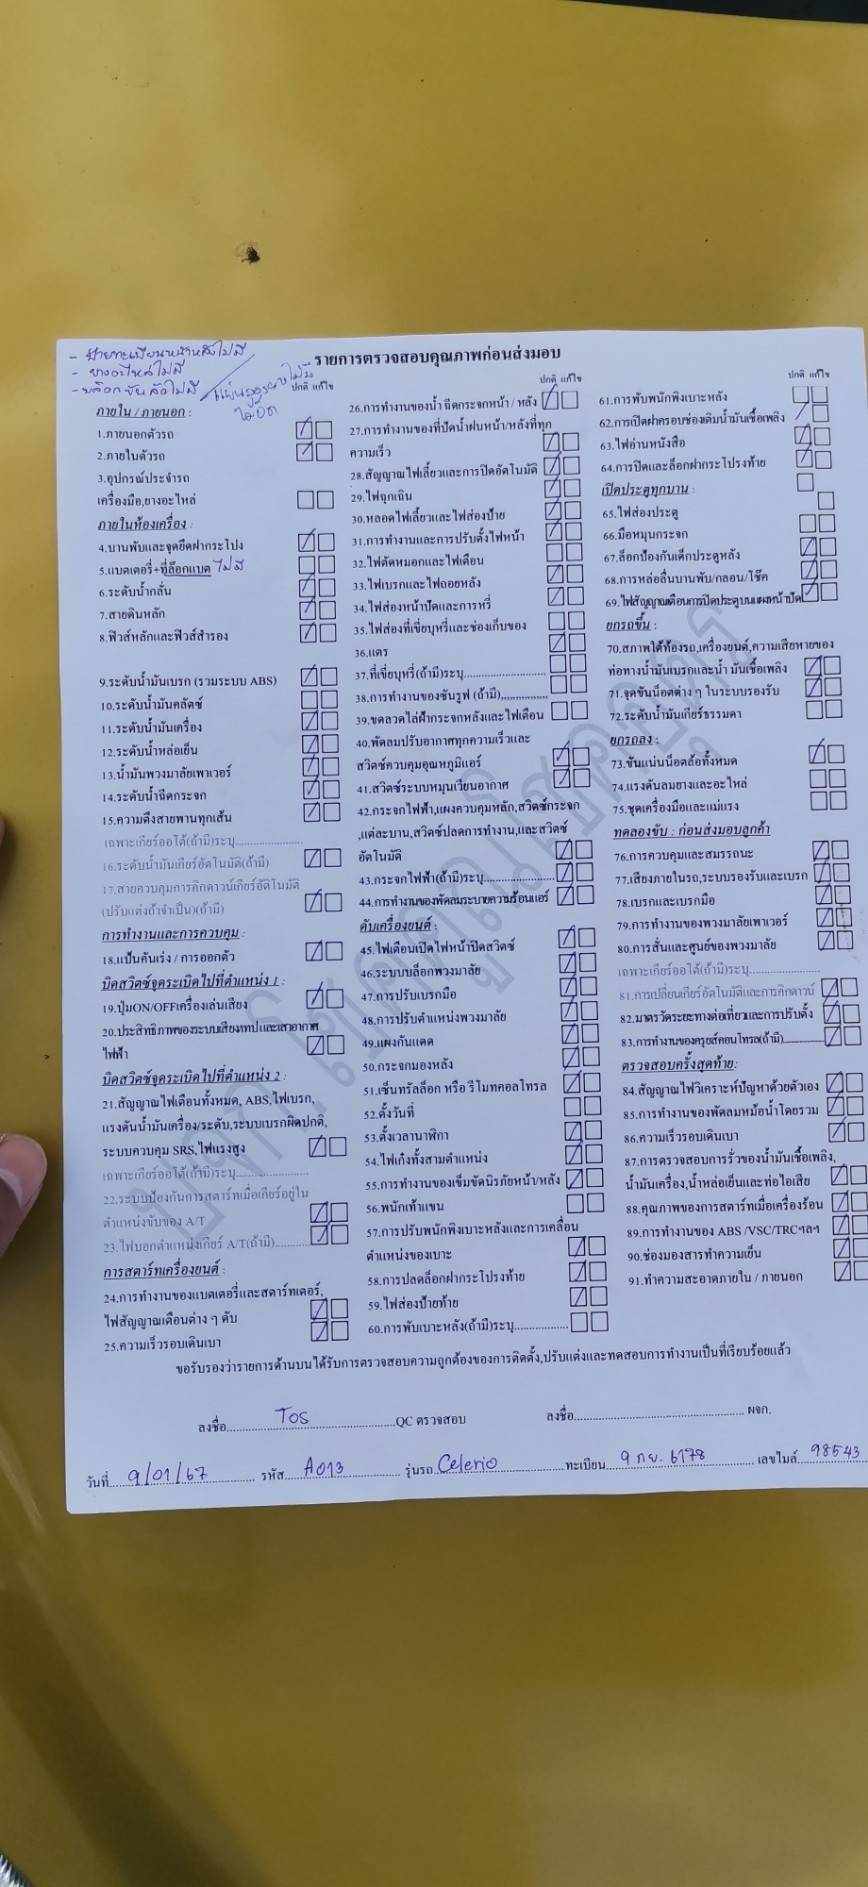 - ป้ายทะเบียนหน้าหลังไม่มี
- ยางอะไหล่ไม่มี
- บล็อกขันล้อไม่มี
รายการตรวจสอบคุณภาพก่อนส่งมอบ
ปกติ แก้ไข
ภายใน / ภายนอก :
1.ภายนอกตัวรถ
2.ภายในตัวรถ
3.อุปกรณ์ประจำรถ
เครื่องมือ,ยางอะไหล่
ภายในห้องเครื่อง :
4.บานพับและจุดยึดฝากระโปรง
5.แบตเตอรี่+ที่ล็อกแบต ไม่มี
6.ระดับน้ำกลั่น
7.สายดินหลัก
8.ฟิวส์หลักและฟิวส์สำรอง
9.ระดับน้ำมันเบรก (รวมระบบ ABS)
10.ระดับน้ำมันคลัตช์
11.ระดับน้ำมันเครื่อง
12.ระดับน้ำหล่อเย็น
13.น้ำมันพวงมาลัยเพาเวอร์
14.ระดับน้ำฉีดกระจก
15.ความตึงสายพานทุกเส้น
เฉพาะเกียร์ออโต้(ถ้ามี)ระบุ....................
16.ระดับน้ำมันเกียร์อัตโนมัติ(ถ้ามี)
17.สายควบคุมการคิกดาวน์เกียร์อัติโนมัติ
(ปรับแต่งถ้าจำเป็น)(ถ้ามี)
การทำงานและการควบคุม :
18.แป้นคันเร่ง / การออกตัว
บิดสวิตช์จุดระเบิดไปที่ตำแหน่ง 1 :
19.ปุ่มON/OFFเครื่องเล่นเสียง
20.ประสิทธิภาพของระบบเสียงเทปและเสาอากาศ
ไฟฟ้า
บิดสวิตช์จุดระเบิดไปที่ตำแหน่ง 2 :
21.สัญญาณไฟเตือนทั้งหมด, ABS,ไฟเบรก,
แรงดันน้ำมันเครื่อง/ระดับ,ระบบเบรกผิดปกติ,
ระบบควบคุม SRS,ไฟแรงสูง
เฉพาะเกียร์ออโต้(ถ้ามี)ระบุ....................
22.ระบบป้องกันการสตาร์ทเมื่อเกียร์อยู่ใน
ตำแหน่งขับของ A/T
23.ไฟบอกตำแหน่งเกียร์ A/T(ถ้ามี)..........
การสตาร์ทเครื่องยนต์ :
24.การทำงานของแบตเตอรี่และสตาร์ทเตอร์,
ไฟสัญญาณเตือนต่าง ๆ ดับ
25.ความเร็วรอบเดินเบา
ปกติ แก้ไข
26.การทำงานของน้ำ ฉีดกระจกหน้า / หลัง
27.การทำงานของที่ปัดน้ำฝนหน้า/หลังที่ทุก
ความเร็ว
28.สัญญาณไฟเลี้ยวและการปิดอัตโนมัติ
29.ไฟฉุกเฉิน
30.หลอดไฟเลี้ยวและไฟส่องป้าย
31.การทำงานและการปรับตั้งไฟหน้า
32.ไฟตัดหมอกและไฟเดือน
33.ไฟเบรกและไฟถอยหลัง
34.ไฟส่องหน้าปัดและการหรี่
35.ไฟส่องที่เขี่ยบุหรี่และช่องเก็บของ
36.แตร
37.ที่เขี่ยบุหรี่(ถ้ามี)ระบุ....................
38.การทำงานของซันรูฟ (ถ้ามี)...............
39.ขดลวดไล่ฝ้ากระจกหลังและไฟเตือน
40.พัดลมปรับอากาศทุกความเร็วและ
สวิตช์ควบคุมอุณหภูมิแอร์
41.สวิตช์ระบบหมุนเวียนอากาศ
42.กระจกไฟฟ้า,แผงควบคุมหลัก,สวิตช์กระจก
,แต่ละบาน,สวิตช์ปลดการทำงาน,และสวิตช์
อัตโนมัติ
43.กระจกไฟฟ้า(ถ้ามี)ระบุ....................
44.การทำงานของพัดลมระบายความร้อนแอร์
ดับเครื่องยนต์ :
45.ไฟเตือนเปิดไฟหน้าปิดสวิตช์
46.ระบบบล็อกพวงมาลัย
47.การปรับเบรกมือ
48.การปรับตำแหน่งพวงมาลัย
49.แผงกันแดด
50.กระจกมองหลัง
51.เซ็นทรัลล็อก หรือ รีโมทคอลโทรล
52.ตั้งวันที่
53.ตั้งเวลานาฬิกา
54.ไฟเก๋งทั้งสามตำแหน่ง
55.การทำงานของเข็มขัดนิรภัยหน้า/หลัง
56.พนักเท้าแขน
57.การปรับพนักพิงเบาะหลังและการเคลื่อน
ตำแหน่งของเบาะ
58.การปลดล็อกฝากระโปรงท้าย
59.ไฟส่องป้ายท้าย
60.การพับเบาะหลัง(ถ้ามี)ระบุ...............
ปกติ แก้ไข
61.การพับพนักพิงเบาะหลัง
62.การเปิดฝาครอบช่องเติมน้ำมันเชื้อเพลิง
63.ไฟอ่านหนังสือ
64.การปิดและล็อกฝากระโปรงท้าย
เปิดประตูทุกบาน :
65.ไฟส่องประตู
66.มือหมุนกระจก
67.ล็อกป้องกันเด็กประตูหลัง
68.การหล่อลื่นบานพับ/กลอน/โช๊ค
69.ไฟสัญญาณเตือนการปิดประตูบนแผงหน้าปัด
ยกรถขึ้น :
70.สภาพใต้ท้องรถ,เครื่องยนต์,ความเสียหายของ
ท่อทางน้ำมันเบรกและน้ำ มันเชื้อเพลิง
71.จุดขันน็อตต่าง ๆ ในระบบรองรับ
72.ระดับน้ำมันเกียร์ธรรมดา
ยกรถลง :
73.ขันแน่นน็อตล้อทั้งหมด
74.แรงดันลมยางและอะไหล่
75.ชุดเครื่องมือและแม่แรง
ทดลองขับ : ก่อนส่งมอบลูกค้า
76.การควบคุมและสมรรถนะ
77.เสียงภายในรถ,ระบบรองรับและเบรก
78.เบรกและเบรกมือ
79.การทำงานของพวงมาลัยเพาเวอร์
80.การสั่นและศูนย์ของพวงมาลัย
เฉพาะเกียร์ออโต้(ถ้ามี)ระบุ....................
81.การเปลี่ยนเกียร์อัตโนมัติและการคิกดาวน์
82.มาตรวัดระยะทางต่อเที่ยวและการปรับตั้ง
83.การทำงานของครุยส์คอนโทรล(ถ้ามี)..........
ตรวจสอบครั้งสุดท้าย:
84.สัญญาณไฟวิเคราะห์ปัญหาด้วยตัวเอง
85.การทำงานของพัดลมหม้อน้ำโดยรวม
86.ความเร็วรอบเดินเบา
87.การตรวจสอบการรั่วของน้ำมันเชื้อเพลิง,
น้ำมันเครื่อง,น้ำหล่อเย็นและท่อไอเสีย
88.คุณภาพของการสตาร์ทเมื่อเครื่องร้อน
89.การทำงานของ ABS /VSC/TRCฯลฯ
90.ช่องมองสารทำความเย็น
91.ทำความสะอาดภายใน / ภายนอก
ขอรับรองว่ารายการด้านบนได้รับการตรวจสอบความถูกต้องของการติดตั้ง,ปรับแต่งและทดสอบการทำงานเป็นที่เรียบร้อยแล้ว
ลงชื่อ.......Tos.......QC ตรวจสอบ ลงชื่อ....................ผจก.
วันที่ 9/01/67 รหัส A013 รุ่นรถ Celerio ทะเบียน 9 กย. 6178 เลขไมล์ 98543